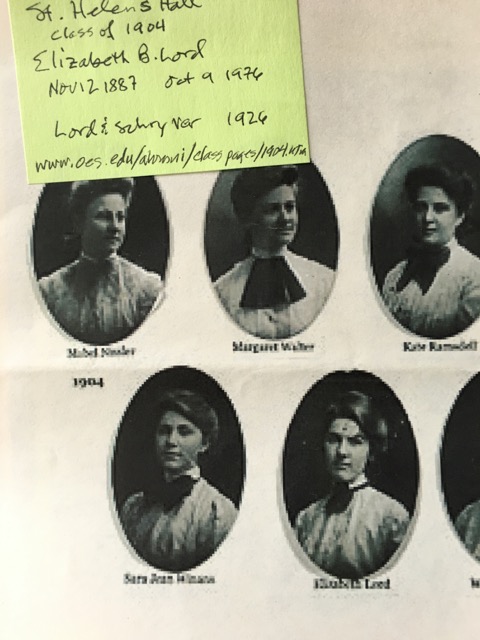 St. Helens Hall
class of 1904
Elizabeth B. Lord
NOV 12 1887 Oct 9 1976
Lord & Schryver 1926
www.oes.edu/alumni/classpages/1904.htm
Mabel Nissler
Margaret Walter
Kate Ramsdell
1904
Sara Jean Winans
Elizabeth Lord